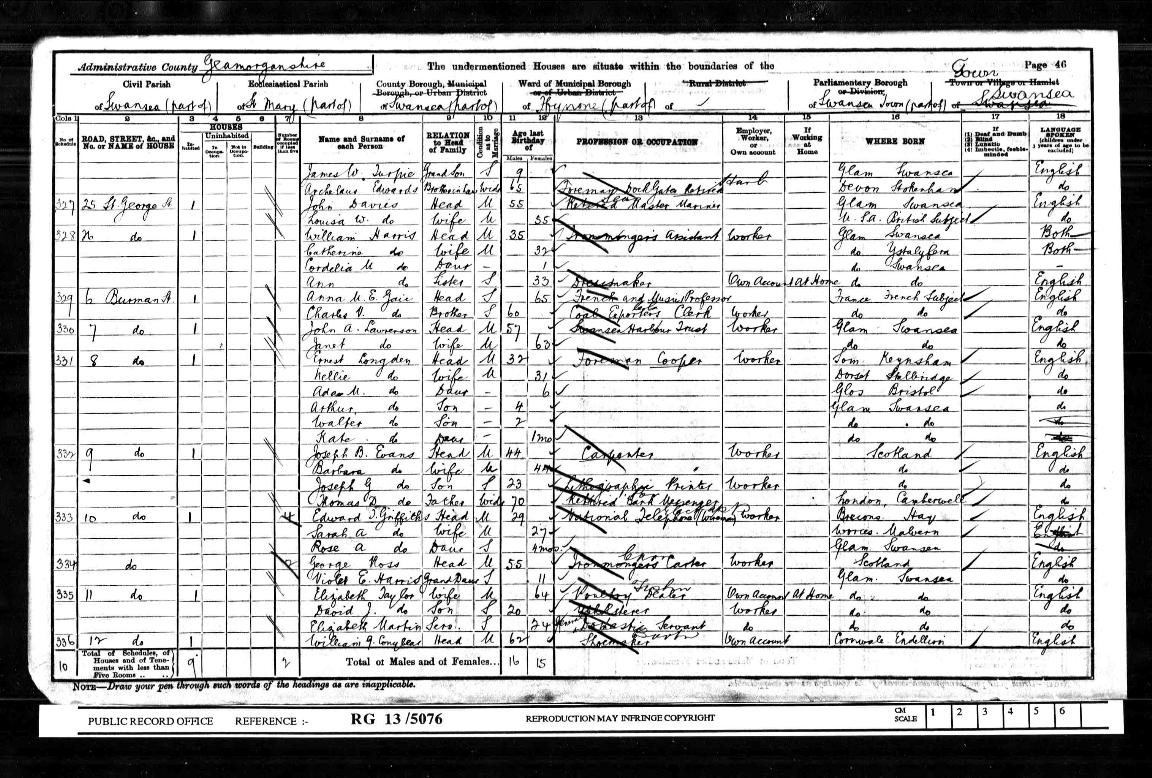 Administrative County Glamorganshire The undermentioned Houses are situate within the boundaries of the Page 46
Civil Parish Ecclesiastical Parish County Borough, Municipal Borough or Urban District Ward of Municipal Borough or of Urban District Rural District Parliamentary Borough or Division Town or Village or Hamlet
of Swansea (part of) of St Mary (part of) of Swansea (part of) of Ffynone (part of) of of Swansea Town (part of) of Swansea
Cols 1 2 3 4 5 6 7 8 9 10 11 12 13 14 15 16 17 18
No. of Schedule ROAD, STREET, &c., and No. or NAME of HOUSE HOUSES Inhabited Uninhabited In Occupation Not in Occupation Building Number of Rooms occupied if less than five Name and Surname of each Person RELATION to Head of Family Condition as to Marriage Age last Birthday of Males Females PROFESSION OR OCCUPATION Employer, Worker, or Own account If Working at Home WHERE BORN If (1) Deaf and Dumb (2) Blind (3) Lunatic (4) Imbecile, feeble-minded LANGUAGE SPOKEN (children under 3 years of age to be excluded)
James W. Turpie Grand Son S 9 Glam Swansea English
Archelaus Edwards Brother in law Widr 65 Foreman Dock Gates Retired Harb Devon Stokenham do
327 25 St. George St 1 John Davies Head M 55 Retired Master Mariner Glam Swansea English
Louisa W. do Wife M 55 U.S.A. British Subject do
328 do 1 William Harris Head M 35 Ironmongers Assistant Worker Glam Swansea Both
Catherine do Wife M 32 do Ystalyfera Both
Cordelia M do Daur - 1 do Swansea -
Ann do Sister S 33 Dressmaker Own Account At Home do do English
329 6 Burman St 1 Anna M. E. Head S 65 French and Music Professor France French Subject English
Charles V. do Brother S 60 Coal Exporters Clerk Worker do do do
330 7 do 1 John A. Lawrenson Head M 57 Swansea Harbour Trust Worker Glam Swansea English
Janet do Wife M 63 do do do
331 8 do 1 Ernest Longden Head M 32 Foreman Cooper Worker Som. Keynsham English
Nellie do Wife M 31 Dorset Stalbridge do
Ada M. do Daur - 6 Glos Bristol do
Arthur do Son - 4 Glam Swansea do
Walter do Son - 2 do do do
Kate do Daur - 1mo do do do
332 9 do 1 Joseph B. Evans Head M 44 Carpenter Worker Scotland English
Barbara do Wife M 44 do do
Joseph G do Son S 23 Lithographic Printer Worker do do
Thomas D. do Father Widr 70 Retired Bank Messenger London, Camberwell do
333 10 do 1 4 Edward J. Griffiths Head M 29 National Telephone (Wireman) Worker Brecons. Hay English
Sarah A do Wife M 27 Worces. Malvern English
Rose A do Daur S 4mos Glam. Swansea do
334 do George Ross Head M 55 Ironmongers Carter Worker Scotland English
Violet E. Harris Grand Daur S 11 Glam. Swansea do
335 11 do 1 Elizabeth Taylor Wife M 64 Poultry Dealer Own Account At Home do do English
David J. do Son S 20 Upholsterer Worker do do do
Elizabeth Martin Serv. S 24 Domestic Servant do do do do
336 12 do 1 William J. Conybear Head M 62 Shoemaker Own Account Cornwall Endellion English
10 Total of Schedules, of Houses and of Tenements with less than Five Rooms 9 2 Total of Males and of Females... 16 15
NOTE—Draw your pen through such words of the headings as are inapplicable.
PUBLIC RECORD OFFICE REFERENCE :- RG 13/5076 REPRODUCTION MAY INFRINGE COPYRIGHT CM SCALE 1 2 3 4 5 6